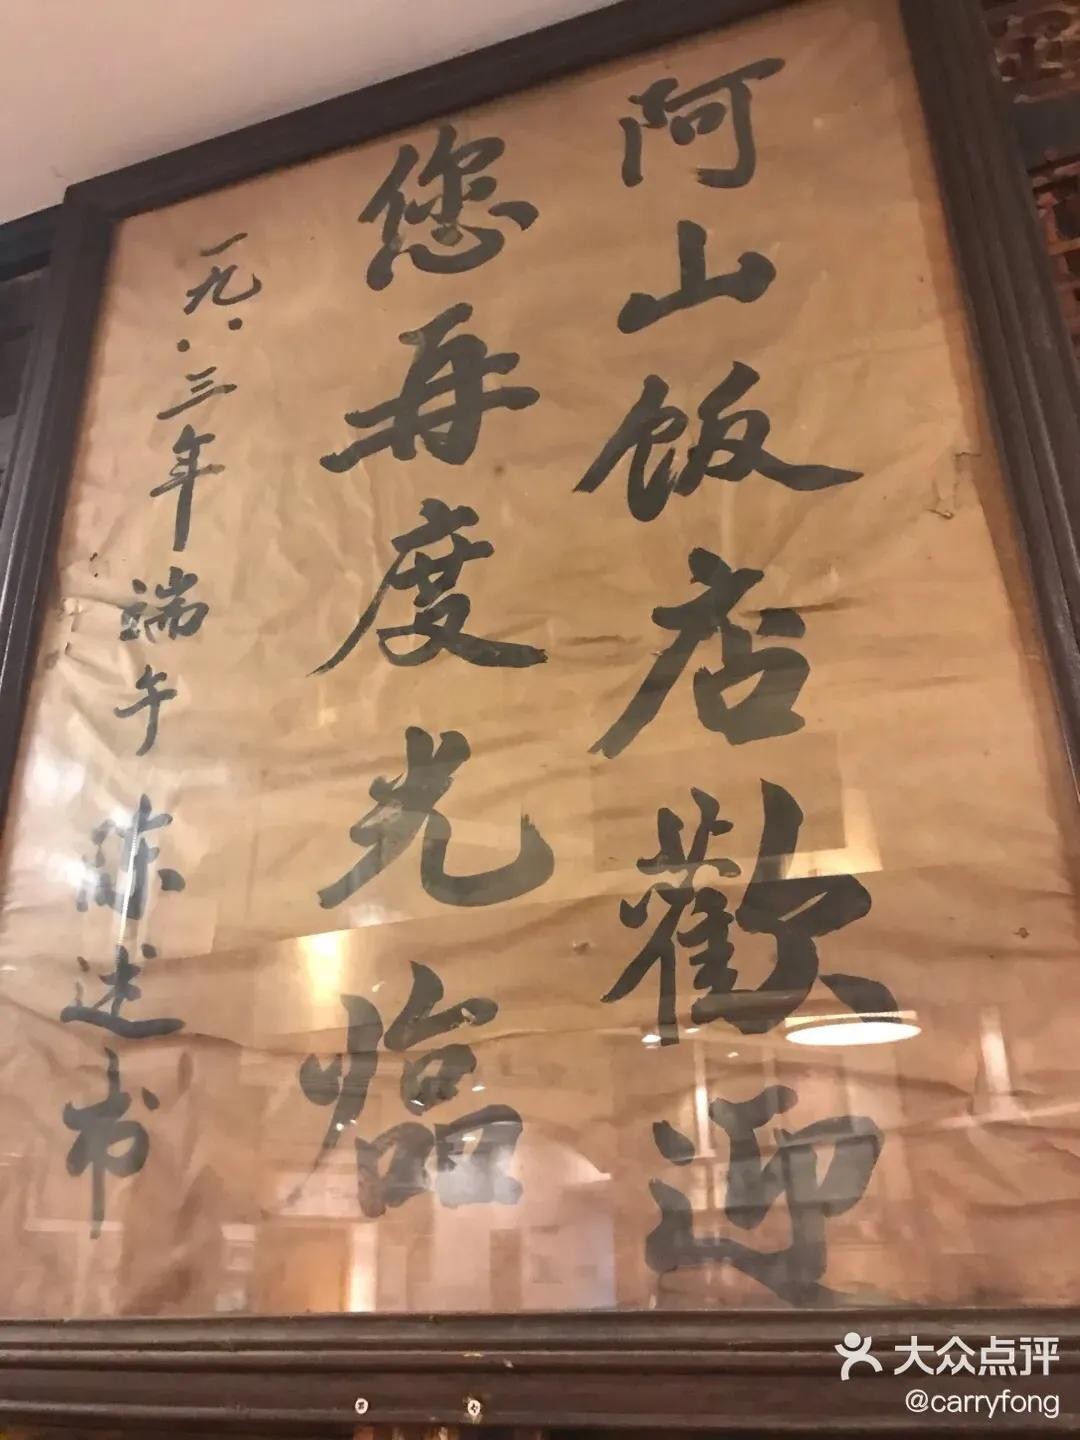 阿山饭店歡迎
您再度光临
一九··三年端午陈述书
大众点评
@carryfong